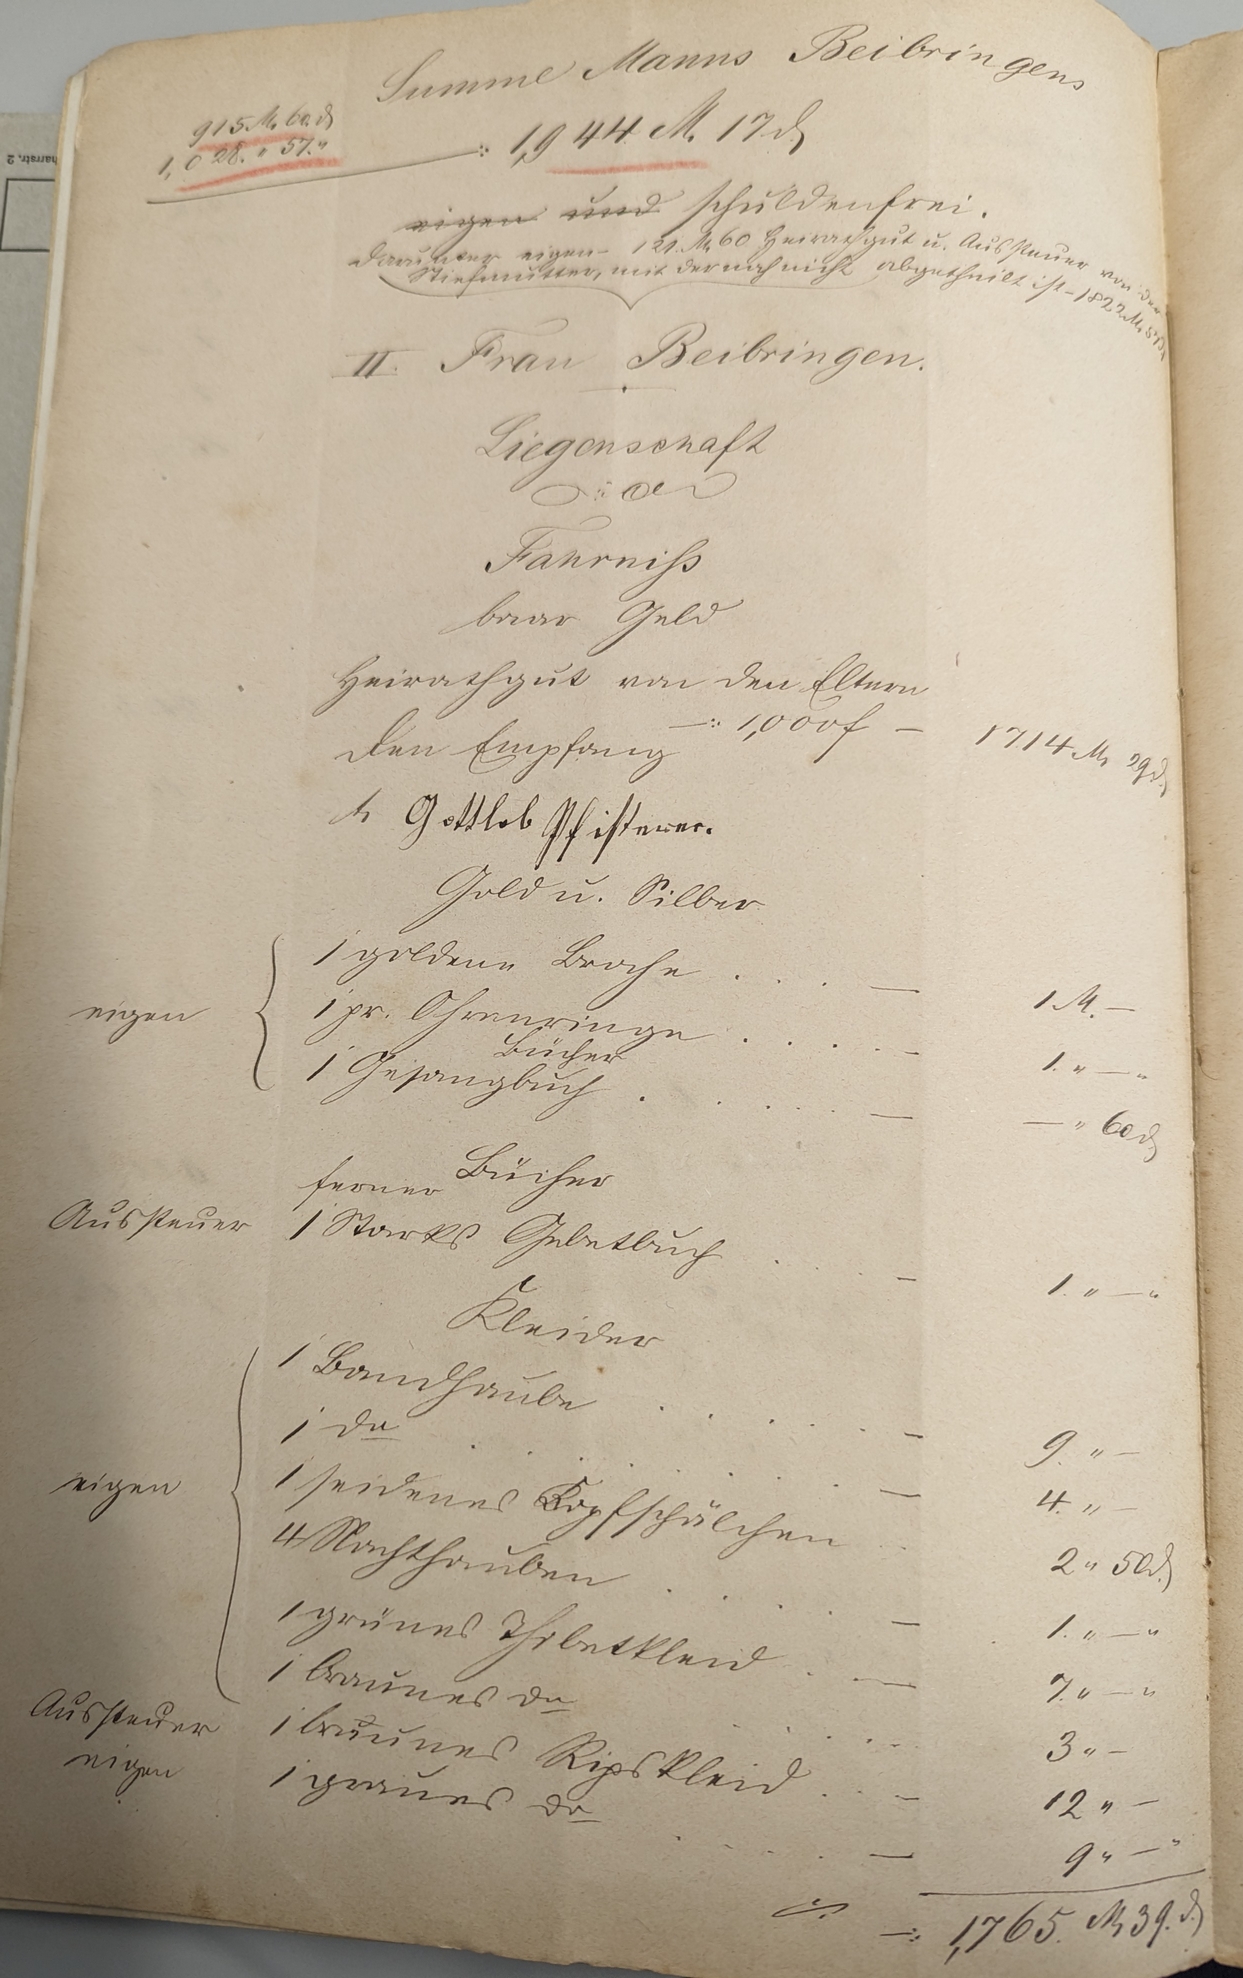 Summe Manns Beibringens
915 M. 60. ₰
1,028. " 57. "
-: 1,944 M. 17 ₰
eigen und schuldenfrei.
darunter eigen - 121 M. 60 Heirathgut u. Aussteuer von der
Stiefmutter, mit der noch nicht abgetheilt ist - 1822 M. 57 ₰
II. Frau Beibringen.
Liegenschaft
-:0-
Fahrniß
baar Geld
Heirathgut von den Eltern
-: 1,000 f - 1714 M. 29 ₰
den Empfang
Gottlob Pfisterer.
Gold u. Silber
1 goldene Broche . . . — 1 M. —
eigen
1 pr. Ohrenringe . . . . — 1. " — "
Bücher
1 Gesangbuch . . . . — — " 60 ₰
ferner Bücher
Aussteuer 1 Starks Gebetbuch . . . — 1. " — "
Kleider
1 Bandhaube . . . . — 9. " —
1 do . . . . . — 4. " —
eigen 1 seidenes Kopfschälchen . . 2 " 50 ₰.
4 Nachthauben . . . . — 1. " — "
1 grünes Thibetkleid . . — 7. " — "
1 braunes do . . . . 3 " —
Aussteuer 1 braunes Ripskleid . . — 12 " —
eigen 1 graues do . . . . — 9 " — "
-: 1,765. M 39. ₰